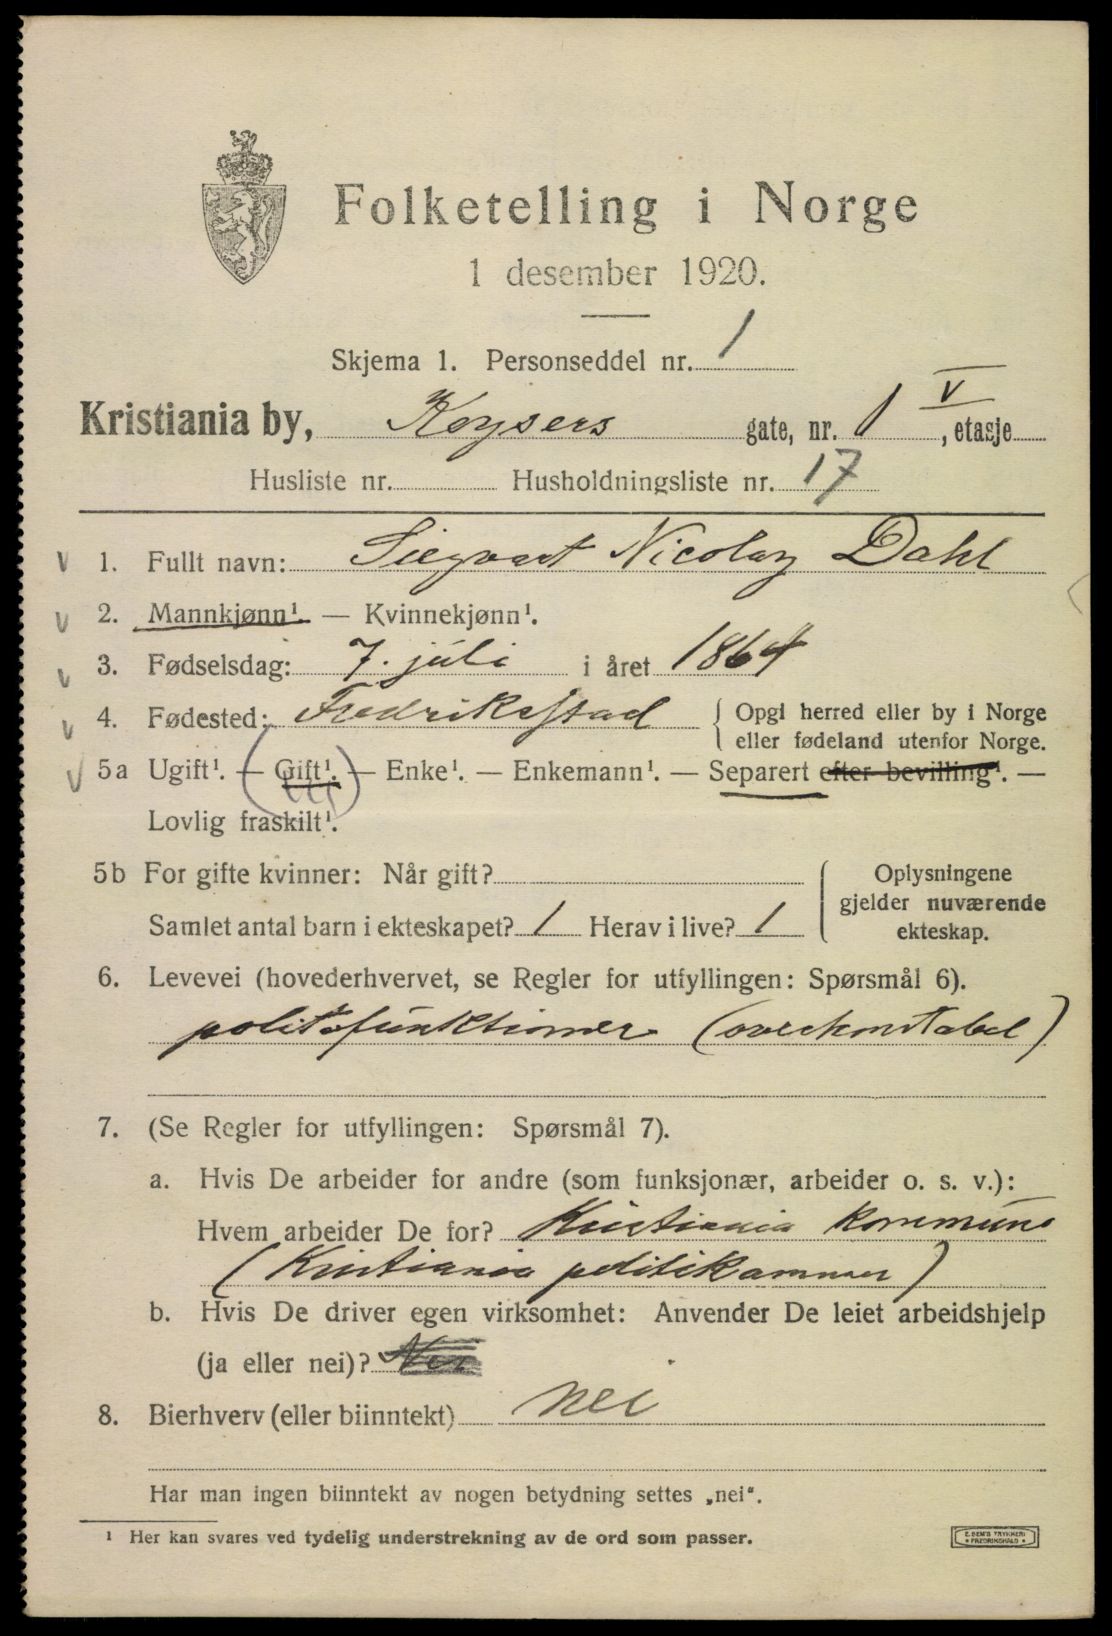 Folketelling i Norge
1 desember 1920.
Skjema 1. Personseddel nr. 1
Kristiania by, Keysers gate, nr. 1 V, etasje
Husliste nr. Husholdningsliste nr. 17
V 1. Fullt navn: Siegvart Nicolay Dahl
V 2. Mannkjønn¹. — Kvinnekjønn¹.
V 3. Fødselsdag: 7. juli i året 1864
V 4. Fødested: Fredrikstad { Opgi herred eller by i Norge
eller fødeland utenfor Norge.
V 5a Ugift¹. — Gift¹. — Enke¹. — Enkemann¹. — Separert efter bevilling¹. —
Lovlig fraskilt¹.
5b For gifte kvinner: Når gift? { Oplysningene
gjelder nuværende
Samlet antal barn i ekteskapet? 1 Herav i live? 1 ekteskap.
6. Levevei (hovederhvervet, se Regler for utfyllingen: Spørsmål 6).
politifunktionær (overkonstabel)
7. (Se Regler for utfyllingen: Spørsmål 7).
a. Hvis De arbeider for andre (som funksjonær, arbeider o. s. v.):
Hvem arbeider De for? Kristiania kommune
(Kristiania politikammer)
b. Hvis De driver egen virksomhet: Anvender De leiet arbeidshjelp
(ja eller nei)? Nei
8. Bierhverv (eller biinntekt) nei
Har man ingen biinntekt av nogen betydning settes „nei“.
¹ Her kan svares ved tydelig understrekning av de ord som passer.
E. SEM'S TRYKKERI
* FREDRIKSHALD *